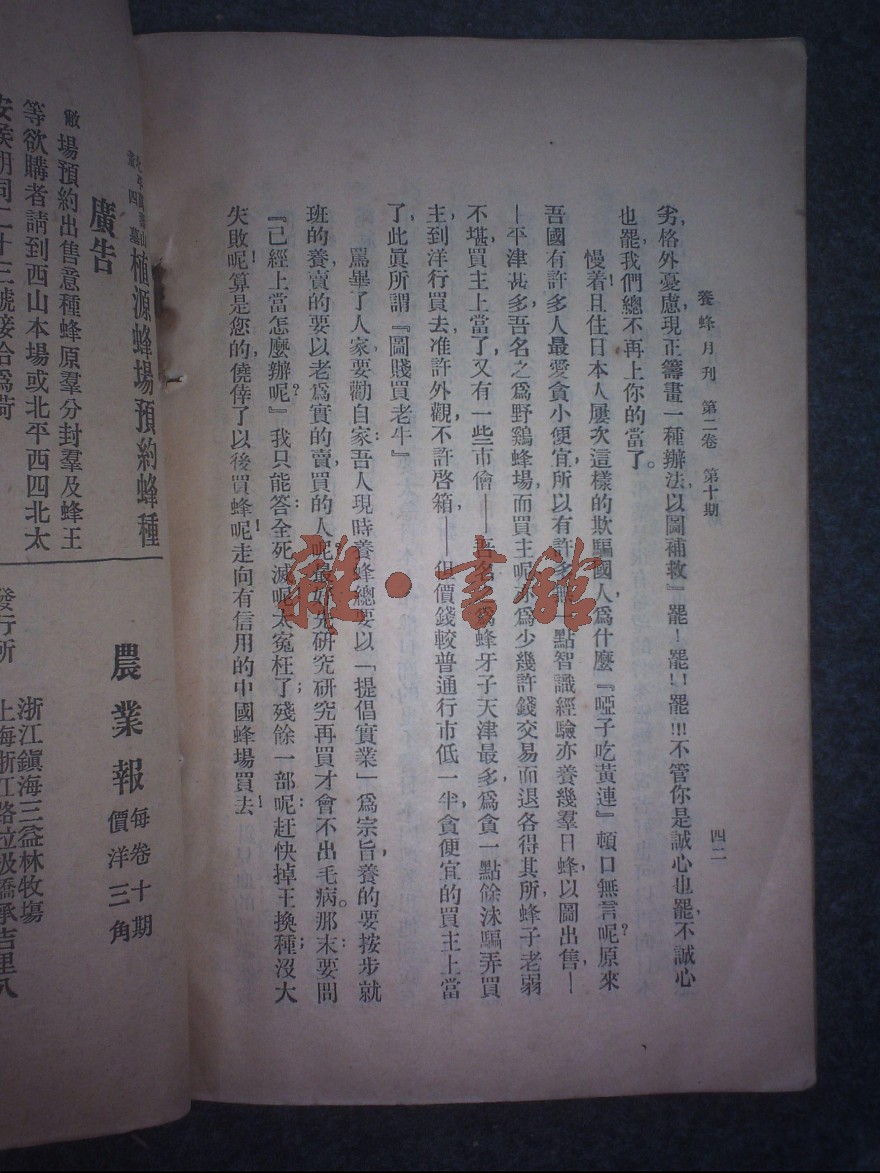 養蜂月刊 第二卷 第十期
四二
劣,格外憂慮,現正籌畫一種辦法,以圖補救』罷!罷!!罷!!!不管你是誠心也罷,不誠心
也罷,我們總不再上你的當了。
慢着!且住!日本人屢次這樣的欺騙國人,爲什麼『啞子吃黃連』頓口無言呢?原來
吾國有許多人最愛貪小便宜,所以有許多無一點智識經驗,亦養幾羣日蜂,以圖出售—
—平津甚多,吾名之爲野鷄蜂場,而買主呢,爲少幾許錢,交易而退,各得其所,蜂子老弱
不堪,買主上當了,又有一些市儈——吾名 爲蜂牙子,天津最多,爲貪一點餘沫,騙弄買
主,到洋行買去,准許外觀,不許啓箱,——但價錢較普通行市低一半,貪便宜的買主上當
了,此眞所謂『圖賤買老牛』
罵畢了人家,要勸自家:吾人現時養蜂,總要以「提倡實業」爲宗旨,養的要按步就
班的養,賣的要以老爲實的賣,買的人呢,最好先研究研究再買,才會不出毛病。那末要問:
『已經上當怎麼辦呢?』我只能答:全死滅呢,太寃枉了;殘餘一部呢,赶快掉王換種;沒大
失敗呢!算是您的僥倖了!以後買蜂呢!走向有信用的中國蜂場買去!
植源蜂場預約蜂種
廣告
敝場預約出售意種蜂原羣分封羣及蜂王
等欲購者請到西山本場或北平西四北太
安侯胡同二十三號接洽爲荷
農業報
每卷十期
價洋三角
發行所
浙江鎮海三益林牧塲
上海浙江路垃圾橋承吉里八
雜·書館